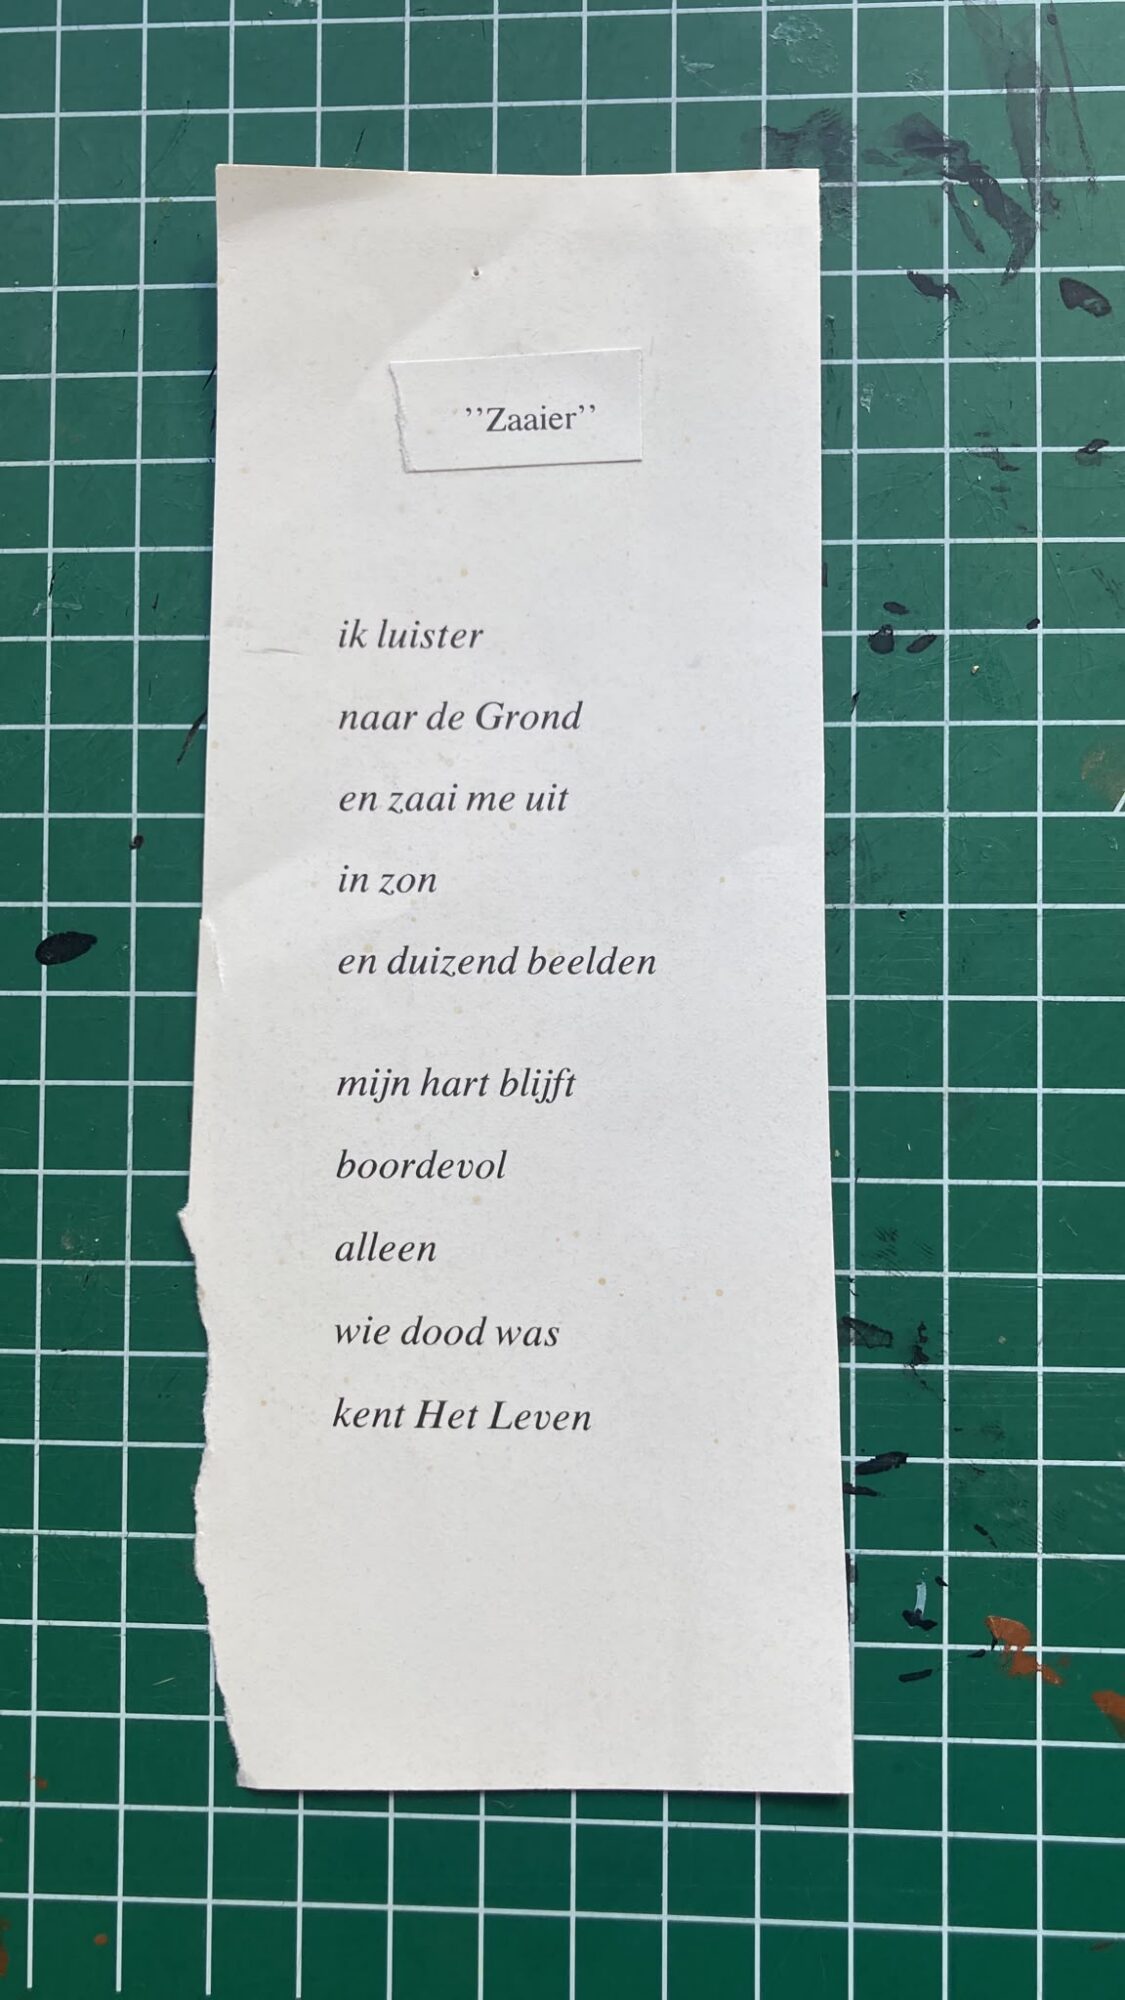 ’’Zaaier’’
ik luister
naar de Grond
en zaai me uit
in zon
en duizend beelden
mijn hart blijft
boordevol
alleen
wie dood was
kent Het Leven